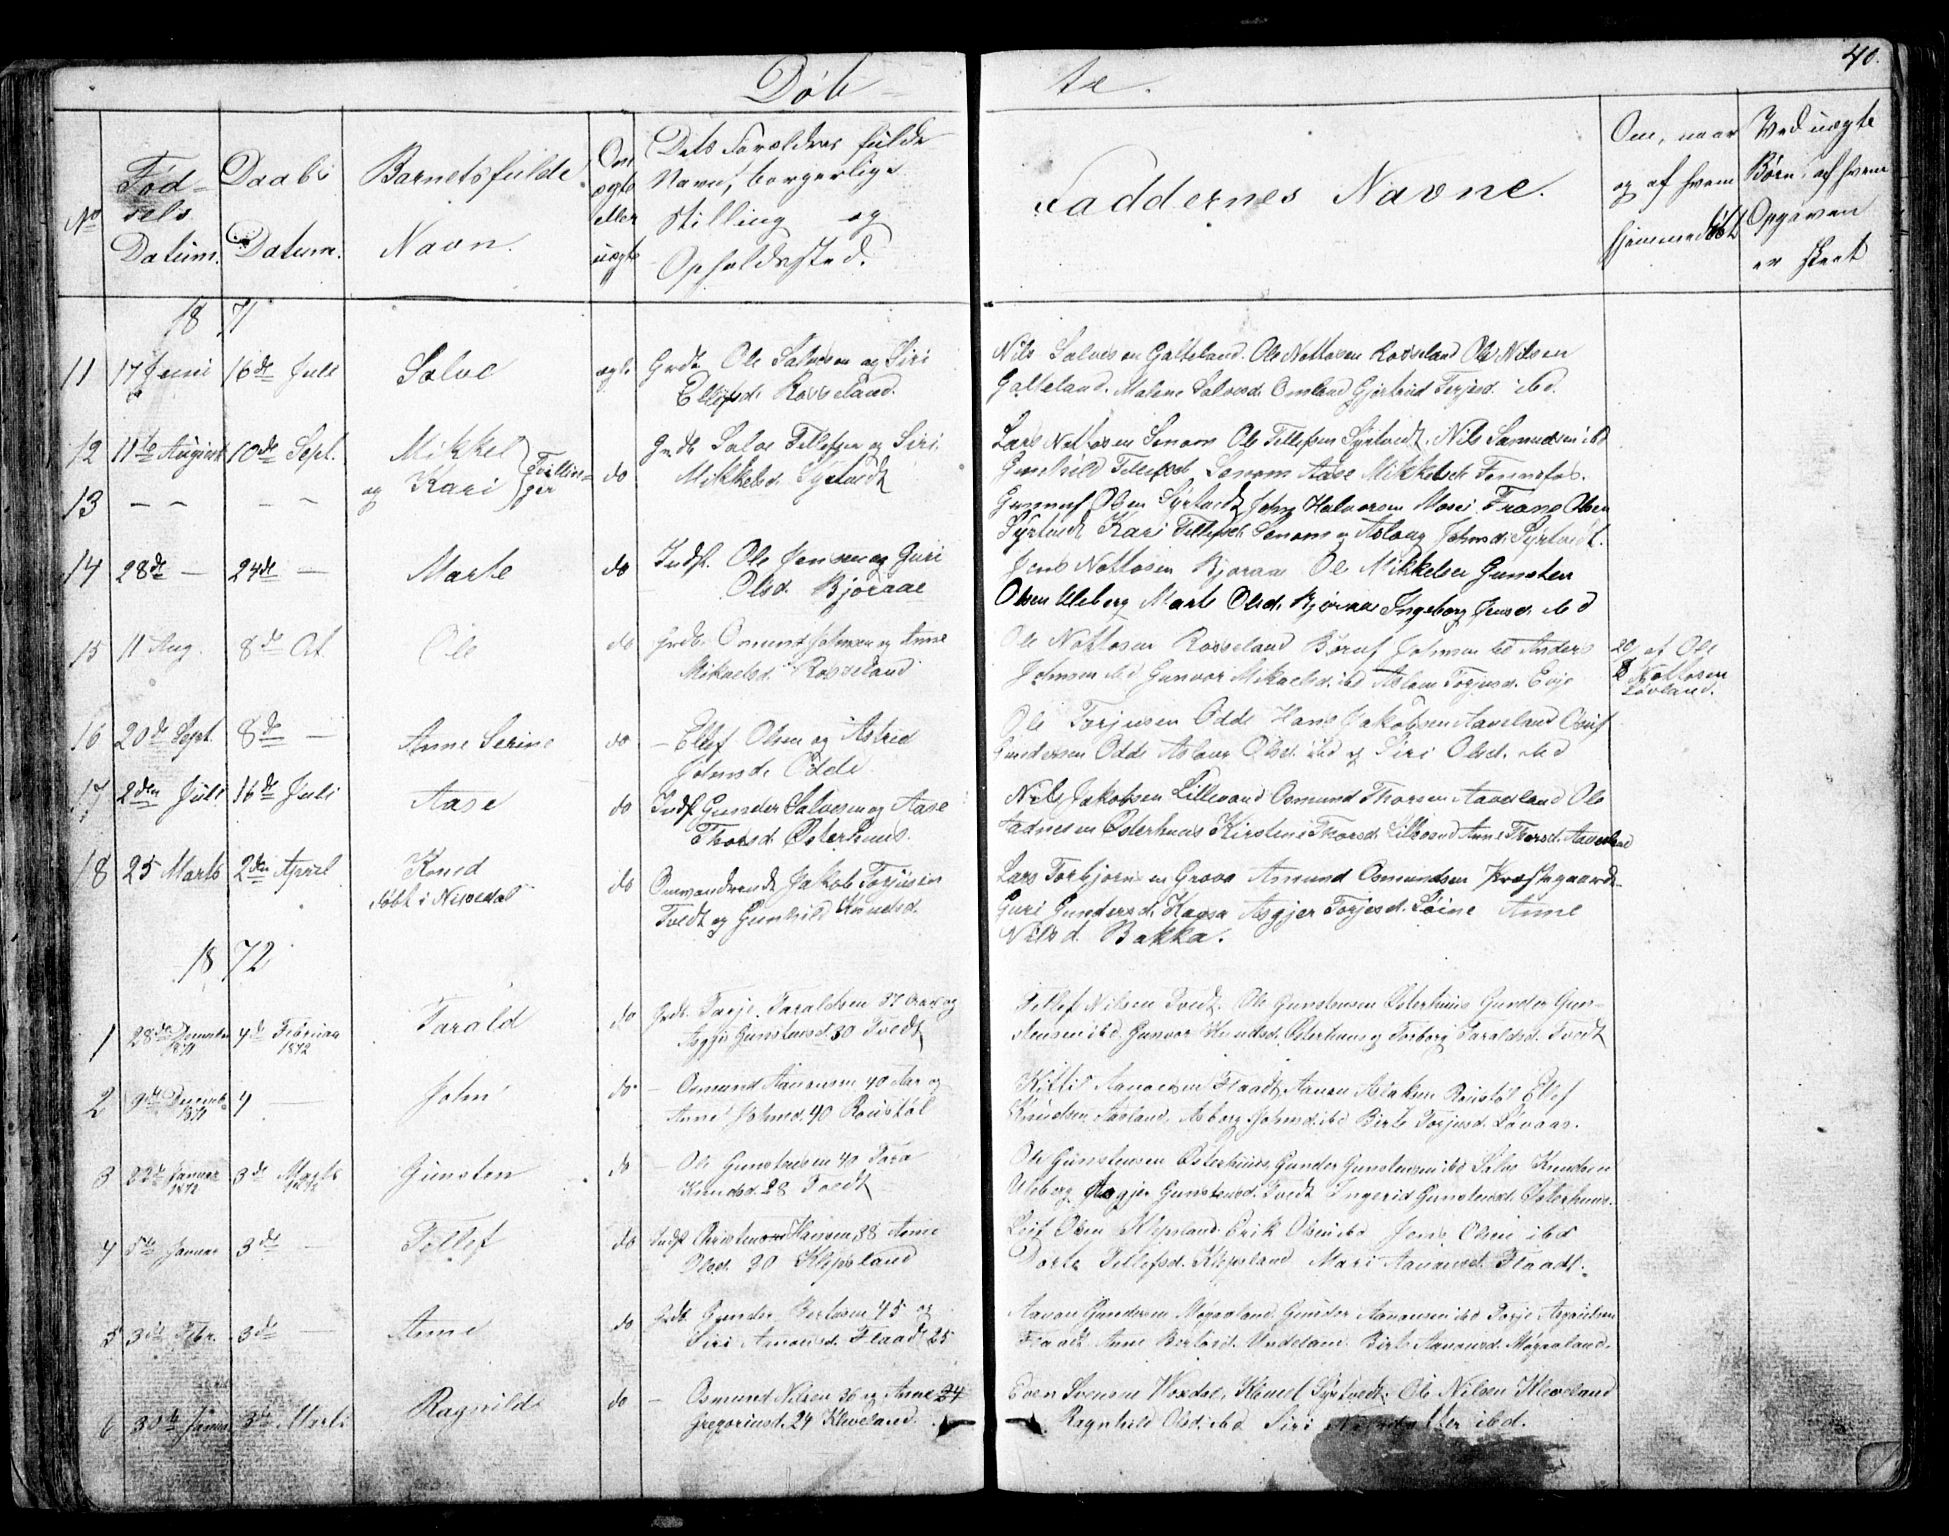 40.
Døb - te.
No
Fød-
sels
Datum.
Daabs
Datum.
Barnets fulde
Navn.
Om
ægte
eller
uægte
Dets Forældres fulde
Navn, borgerlige
Stilling og
Opholdssted.
Faddernes Navne.
Om, naar
og af hvem
hjemmedøbt
Ved uægte
Børn, af hvem
Opgaven
er skeet
1871
11 17 Juni 16de Juli Salve ægte Grdb. Ole Salvesen og Siri
Ellefsd. Rosseland.
Nils Salvesen Galteland. Ole Nottosen Rosseland Ole Nilsen
Galteland. Malene Salvesd. Omland Gjertrud Terjesd. ibd.
12 11te August 10de Sept. Mikkel
13 — — — — og Kari Tvillin-
ger do
Grdb. Salve Tellefsen og Siri
Mikkelsd. Syrtvedt
Lars Nottosen Senom Ole Tellefsen Syrtvedt. Nils Samuelsen ibd
Gunhild Tellefsd. Senom Aase Mikkelsd. Fennefos.
Gunnuf Olsen Syrtvedt John Halvorsen Moseid Frans Olsen
Syrtvedt Kari Tellefsd. Senom og Aslaug Johnsd. Syrtvedt.
14 28de — 24de — Marte do Indst. Ole Jensen og Guri
Olsd. Bjoraae
Jens Nottosen Bjoraae Ole Mikkelsen Gunsten
Olsen Uleberg Marte Olsd. Bjoraae Ingeborg Jensd. ibd
15 11 Aug. 8de Oct. Ole do Grdb. Osmund Johnsen og Anne
Mikaelsd. Rosseland
Ole Nottosen Rosseland Børuf Johnsen ibd Anders
Johnsen ibd Gunvor Mikaelsd. ibd Aslaug Torjusd. Evje
20/8 af Ole
Nottosen
Løvland.
16 20de Sept. 8de — Anne Serine do — Ellef Olsen og Astrid
Johnsd. Odde
Ole Torjusen Odde Hans Jakobsen Aaveland
Gundersen Odde Aslaug Olsd. ibd og Siri Olsd. ibd
17 2den Juli 16de Juli Aase do Indst Gunder Salvesen og Aase
Thorsd. Østerhuus.
Nils Jakobsen Lillesand Osmund Thorsen Aaveland Ole
Østerhuus Kirstine Thorsd. Lillesand Anne Thorsd. Aaveland
18 25 Marts 2den April Knud
døbt i Nissedal do Omvandrende Jakob Torjusen
Tvedt og Gunhild Knudsd.
Lars Torbjørnsen Grova Amund Osmundsen Prestegaard-
Guri Gundersd. Kaasa Asgjer Torjesd. Løine Anne
Nilsd. Bakka.
1872
1 28de December 1871 4de Februar 1872 Tarald do Grdb. Tarje Taraldsen 37 Aar og
Asgjer Gunstensd. 30 Tvedt
Tellef Nilsen Tvedt. Ole Gunstensen Østerhuus Gunder Gun-
stensen ibd. Gunvor Knudsd. Østerhuus og Torborg Taraldsd. Tvedt
2 9de Decemb. 1871 4 — John do — Osmund Aanonsen 40 Aar og
Anne Johnsd. 40 Roustøl
Kittil Aanonsen Flaadt, Aanon Roustøl Ellef
Knudsen Aasland, Asborg Johnsd. ibd Birte Torjusd. Løvaas.
3 22de Januar 1872 3de Marts 1872 Gunsten do — Ole Gunstensen 40 Tora
Knudsd. 28 Tvedt
Ole Gunstensen Østerhuus, Gunder Gunstensen ibd Salve Knudsen
Uleberg Asgjer Gunstensd. Tvedt Ingerid Gunstensd. Østerhuus.
4 5te Januar 3de — Tellef do Indst Christen Hansen 38 Anne
Olsd. 20 Klepsland
Leif Olsen Klepsland Erik Olsen ibd Jens Olsen ibd
Dorte Tellefsd. Klepsland Mari Aanonsd. Flaadt.
5 3de Febr. 3de — Anne do Grdb. Gunder Bertosen 45 og
Siri Aanonsd. Flaadt 25
Aanon Gundersen Møgaaland Gunder Aanonsen ibd Torje
Flaadt Anne Bertosd. Birte Aanonsd. Møgaaland.
6 30te Januar 3de Marts Ragnild do — Osmund Nilsen 36 og Anne 24
Gregoriusd. 24 Kleveland.
Even Svensen Knud Syrtvedt Ole Nilsen Kleveland
Ragnhild Olsd. ibd Siri ibd.